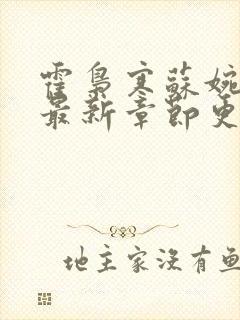 霍梟寒蘇婉
最新章節更
地主家沒有魚